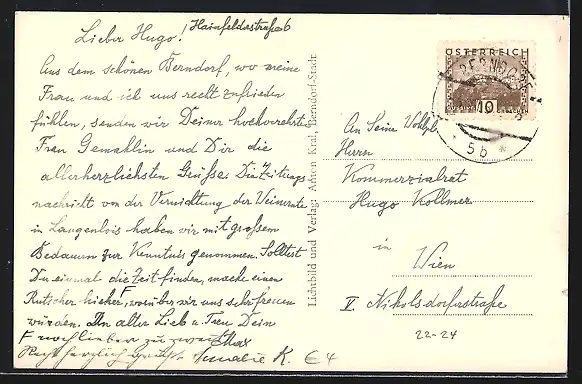 Lieber Hugo! Hainfelderstraße 6
Aus dem schönen Berndorf, wo meine
Frau und ich uns recht zufrieden
fühlen, senden wir Deiner hochverehrten
Frau Gemahlin und Dir die
allerherzlichsten Grüße. Die Zeitungs
nachricht von der Vernichtung der Weinernte
in Langenlois haben wir mit großem
Bedauern zur Kenntnis genommen. Solltest
Du einmal die Zeit finden, mache einen
Rutscher hieher, worüber wir uns sehr freuen
würden. In alter Lieb u. Treu Dein
Max
Recht herzlich grüßt Amalie K. € 4
Lichtbild und Verlag: Anton Kral, Berndorf-Stadt
ÖSTERREICH
BERNDORF
10
5b *
An Seine
Herrn
Kommerzialrat
Hugo Kollmer
in
Wien
V. Nikolsdorferstraße
22-24